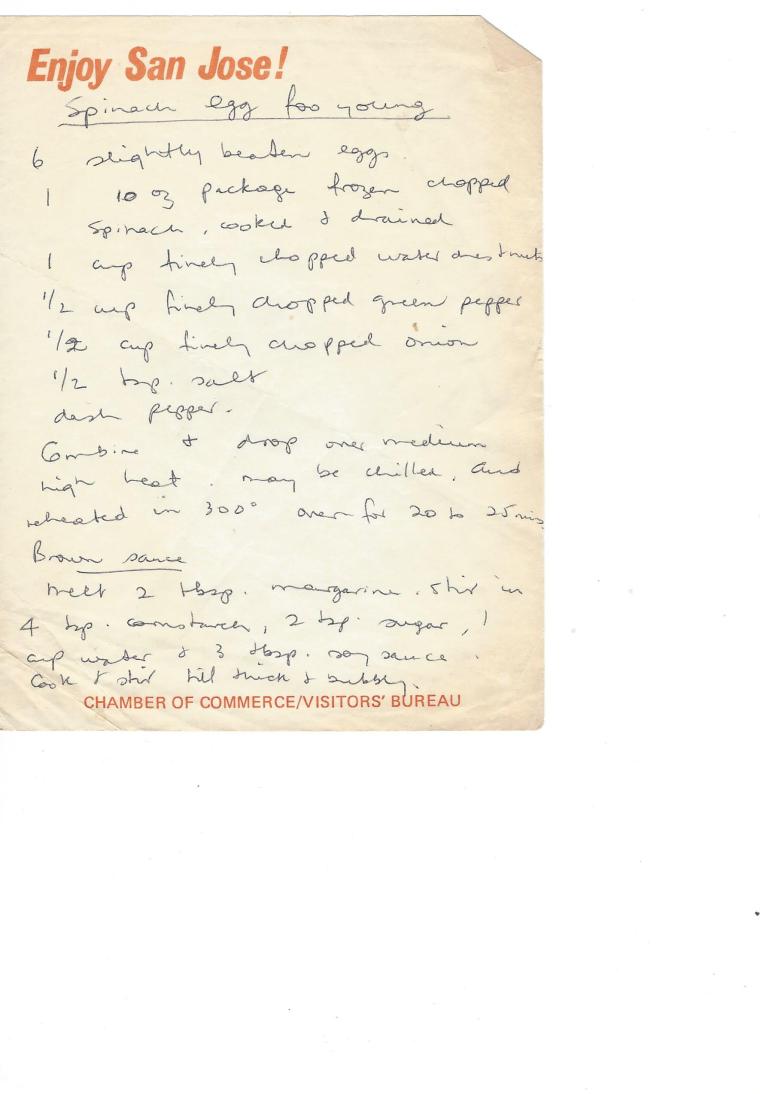 Enjoy San Jose!
Spinach egg foo young
6 slightly beaten eggs.
1 10 oz package frozen chopped
spinach, cooked & drained
1 cup finely chopped water chestnuts
1/2 cup finely chopped green pepper
1/2 cup finely chopped onion
1/2 tsp. salt
dash pepper.
Combine & drop over medium
high heat. may be chilled. and
reheated in 300° oven for 20 to 25 mins
Brown sauce
Melt 2 tbsp. margarine. stir in
4 tsp. cornstarch, 2 tsp. sugar, 1
cup water & 3 tbsp. soy sauce.
Cook & stir till thick & bubbly.
CHAMBER OF COMMERCE/VISITORS' BUREAU